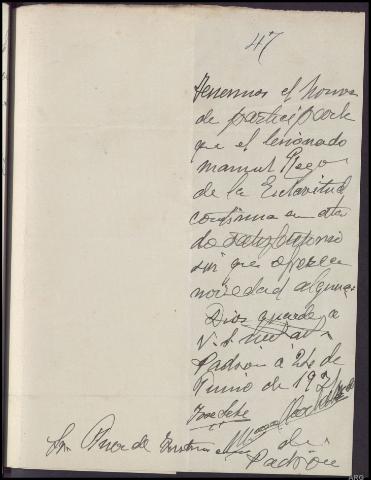 47
Tenemos el honor
de participarle
que el lesionado
Manuel Rego
de la Esclavitud
continua en esta
do satisfactorio
sin que ofrezca
novedad alguna.
Dios guarde a
V. S. muchos
Padron a 24 de
Junio de 19
Jose
Sr. Juez de Instruccion
de
Padron
ARG